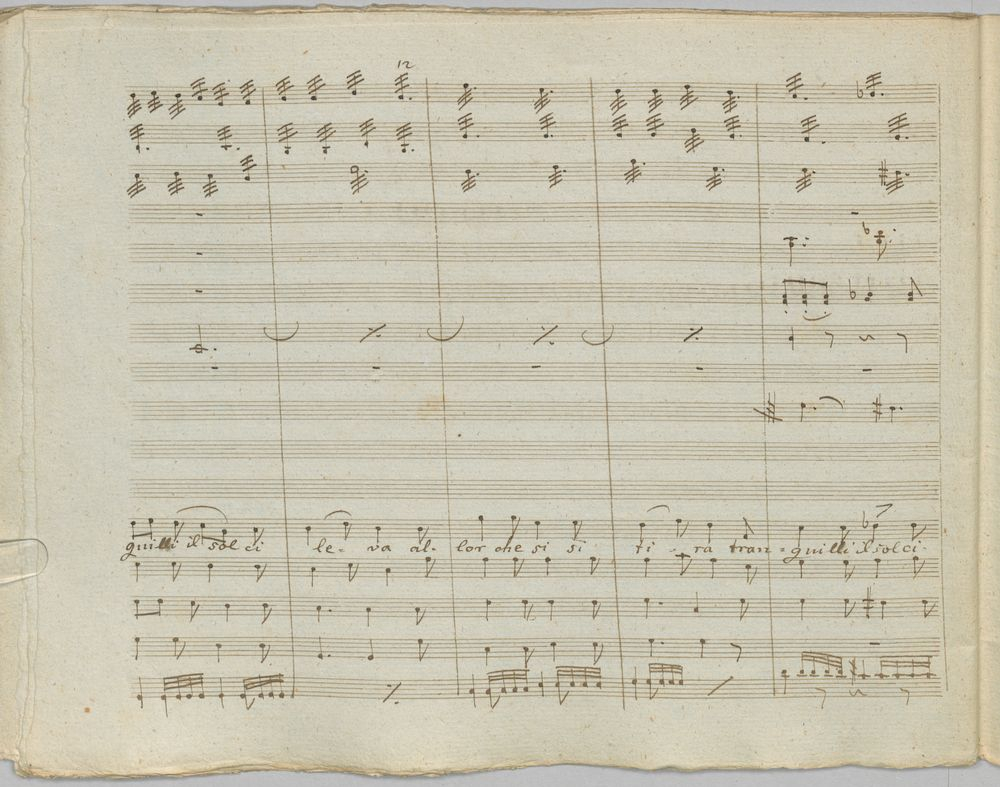 12
quilli il sol ci le- va al- lor che si si ti - ra tran- quilli il sol ci-